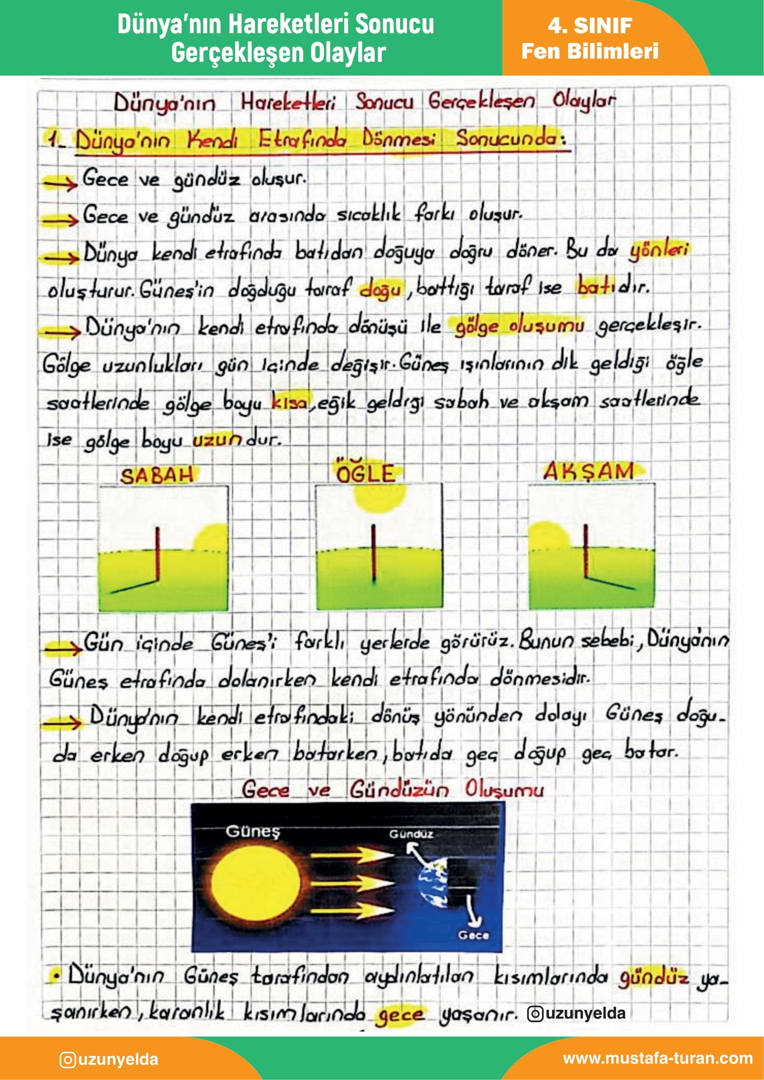 Dünya'nın Hareketleri Sonucu
Gerçekleşen Olaylar
4. SINIF
Fen Bilimleri
Dünya'nın Hareketleri Sonucu Gerçekleşen Olaylar
1- Dünya'nın Kendi Etrafında Dönmesi Sonucunda:
→ Gece ve gündüz oluşur.
→ Gece ve gündüz arasında sıcaklık farkı oluşur.
→ Dünya kendi etrafında batıdan doğuya doğru döner. Bu da yönleri
oluşturur. Güneş'in doğduğu taraf doğu, battığı taraf ise batıdır.
→ Dünya'nın kendi etrafında dönüşü ile gölge oluşumu gerçekleşir.
Gölge uzunlukları gün içinde değişir. Güneş ışınlarının dik geldiği öğle
saatlerinde gölge boyu kısa, eğik geldiği sabah ve akşam saatlerinde
ise gölge boyu uzundur.
SABAH ÖĞLE AKŞAM
→ Gün içinde Güneş'i farklı yerlerde görürüz. Bunun sebebi, Dünya'nın
Güneş etrafında dolanırken kendi etrafında dönmesidir.
→ Dünya'nın kendi etrafındaki dönüş yönünden dolayı Güneş doğu-
da erken doğup erken batarken, batıda geç doğup geç batar.
Gece ve Gündüzün Oluşumu
Güneş
Gündüz
Gece
• Dünya'nın Güneş tarafından aydınlatılan kısımlarında gündüz ya-
şanırken, karanlık kısımlarında gece yaşanır. uzunyelda
uzunyelda
www.mustafa-turan.com